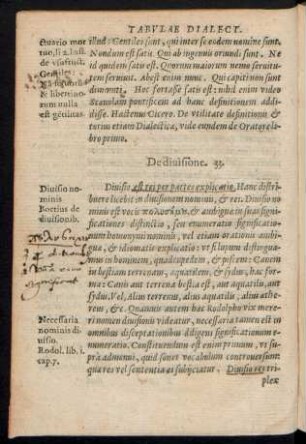 TABVLAE DIALECT.
illud: Gentiles sunt, qui inter se eodem nomine sunt.
Nondum est satis. Qui ab ingenuis oriundi sunt. Ne
id quidem satis est. Quorum maiorum nemo seruitu-
tem seruiuit. Abest enim nunc. Qui capite non sunt
diminuti. Hoc fortasse satis est: nihil enim video
Scæuolam pontificem ad hanc definitionem addi-
disse. Hactenus Cicero. De vtilitate definitionis &
tutum etiam Dialectica, vide eundem de Oratore li-
bro primo.
& libertino-
rum nulla
est gẽtilitas
De diuisione. 33.
Diuisio no-
minis
Boetius de
diuisionib.
Diuisio est rei per partes explicatio. Hanc distri-
buere licebit in diuisionem nominis, & rei. Diuisio no-
minis est vocis & ambiguæ in suas signi-
ficationes distinctio, seu enumeratio significationum
vel etiam orationis ambi-
guæ, & idiomatis explicatio: vt si lupum distinguas
in hominem, quadrupedem, & piscem: Canem
in bestiam terrenam, aquatilem, & sydus, hoc for-
ma: Canis aut terrena bestia est, aut aquatilis, aut
sydus. Vel, Alius terrenus, alius aquatilis, alius æthe-
reus, &c. Quanuis autem hæc Rodolpho vix mere-
ri nomen diuisionis videatur, necessaria tamen est in
omnibus disceptationibus diligens significationum e-
numeratio. Constituendum est enim primum, vt su-
prà admonui, quid sonet vocabulum controuersum:
quæ res vel sententia ei subijciatur. Diuisio rei tri-
plex
Necessaria
nominis di-
uisio.
Rodol. lib. 1.
cap. 7.